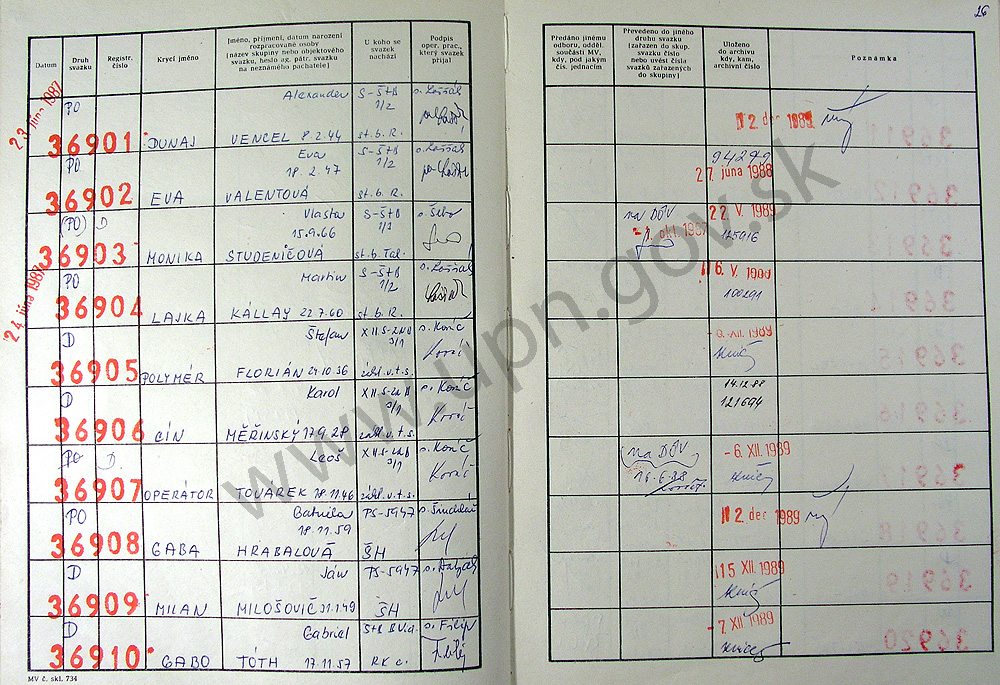 26
Datum
Druh svazku
Registr. číslo
Krycí jméno
Jméno, příjmení, datum narození
rozpracované osoby
(název skupiny nebo objektového
svazku, heslo ag. pátr. svazku
na neznámého pachatele)
U koho se
svazek
nachází
Podpis
oper. prac.,
který svazek
přijal
Předáno jinému
odboru, odděl.
součásti MV,
kdy, pod jakým
čís. jednacím
Převedeno do jiného
druhu svazku
(zařazen do skup.
svazku číslo
nebo uvést čísla
svazků zařazených
do skupiny)
Uloženo
do archivu
kdy, kam,
archivní číslo
Poznámka
23. júna 1987
PO
Alexander
S-ŠtB
1/2
36901
DUNAJ
VENCEL 8.2.44
st. b. R.
12. dec 1989
PO
Eva
S-ŠtB
18.2.47
1/2
36902
EVA
VALENTOVÁ
st. b. R.
94279
27. júna 1988
(PO) D
Vlasta
S-ŠtB
15.9.66
36903
MONIKA
STUDENIČOVÁ
st. b. Tal.
na DÔV
okt. 1987
22. V. 1989
125916
24. júna 1987
PO
Martin
S-ŠtB
1/2
36904
LAJKA
KÁLLAY 22.7.60
st. b. R.
100291
D
Štefan
XII.S-ZNB
3/1
36905
POLYMÉR
FLORIÁN 24.10.36
zákl. v.t.s.
XII. 1989
D
Karol
XII.S-ZNB
3/1
36906
CÍN
MĚŘINSKÝ 17.9.28
zákl. v.t.s.
14.12.88
121694
PO D.
Leoš
XII.S-ZNB
3/1
36907
OPERÁTOR
TOVAREK 18.11.46
zákl. v.t.s.
na DÔV
16.6.88
-6. XII. 1989
PO
Gabriela
PS-5947
18.11.59
36908
GABA
HRABALOVÁ
ŠH
12. dec 1989
D
Ján
PS-5947
36909
MILAN
MILOŠOVIČ 31.1.49
ŠH
15 XII. 1989
D
Gabriel
s. Filip
36910
GABO
TÓTH 17.11.57
RK c.
-7. XII. 1989
MV č. skl. 734
www.upn.gov.sk